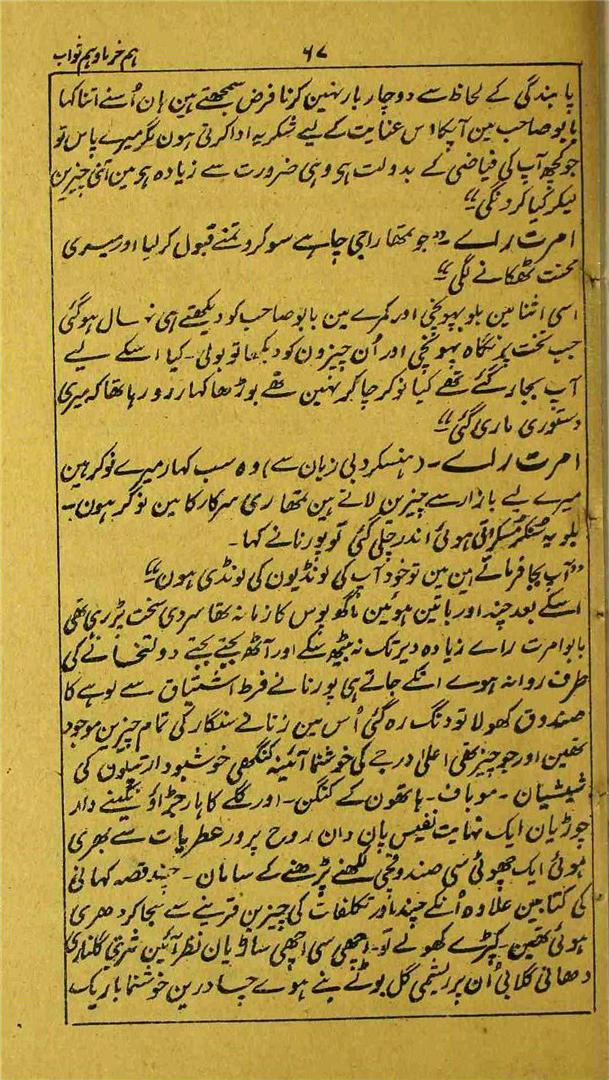 ہم خرما و ہم ثواب ۶۷
پابندگی کے لحاظ سے دوچار بار نہین کرنا فرض سمجھتے ہین ہان اُسنے اتنا کہا
بابو صاحب مین آپکا اس عنایت کے لیے شکریہ ادا کرتی ہون مگر میرے پاس تو
جو کچھ آپ کی فیاضی کے بدولت ہی وہی ضرورت سے زیادہ ہی مین اتنی چیزین
لیکر کیا کرونگی“
امرت راے۔ ”جو تمھارا جی چاہے سو کرو تمنے قبول کر لیا اور میری
محنت ٹھکانے لگی“
اسی اثنا مین بلو پہونچی اور کمرے مین بابو صاحب کو دیکھتے ہی نہال ہو گئی
جب تخت پر نگاہ پہونچی اور اُن چیزون کو دیکھا تو بولی۔ کیا اسکے لیے
آپ بجار گئے تھے کیا نوکر چاکر نہین تھے بوڑھا کہار رو رہا تھا کہ میری
دستوری ماری گئی“
امرت راے۔ (ہنسکر دبی زبان سے) وہ سب کہار میرے نوکر ہین
میرے لیے بازار سے چیزین لاتے ہین تمھاری سرکار کا مین نوکر ہون۔
بلو یہ سُنکر مُسکراتی ہوئی اندر چلی گئی تو پورنا نے کہا۔
”آپ بجا فرماتے ہین مین تو خود آپ کی لونڈیون کی لونڈی ہون“
اسکے بعد چند اور باتین ہوئین ماگھ پوس کا زمانہ تھا سردی سخت پڑ رہی تھی
بابو امرت راے زیادہ دیر تک نہ بیٹھ سکے اور آٹھ بجتے بجتے دولتخانے کی
طرف روانہ ہوے انکے جاتے ہی پورنا نے فرط اشتیاق سے لوہے کا
صندوق کھولا تو دنگ رہ گئی اُس مین زنانے سنگار کی تمام چیزین موجود
تھین اور جو چیز تھی اعلیٰ درجے کی خوشنما آئینہ کنگھی خوشبودار تیلون کی
شیشیان۔ موباف۔ ہاتھون کے کنگن۔ اور گلے کا ہار جڑاؤ نگینے دار
چوڑیان ایک نہایت نفیس پان دان روح پرور عطریات سے بھری
ہوئی ایک چھوٹی سی صندوقچی لکھنے پڑھنے کے سامان۔ چند قصہ کہانی
کی کتابین علاوہ اُنکے چند اور تکلفات کی چیزین قرینے سے سجا کر دھری
ہوئی تھین۔ کپڑے کھولے تو۔ اچھی سی اچھی ساڑیان نظر آئین شربتی گلناری
دھانی گلابی اُن پر ریشمی گل بوٹے بنے ہوے چادرین خوشنما باریک